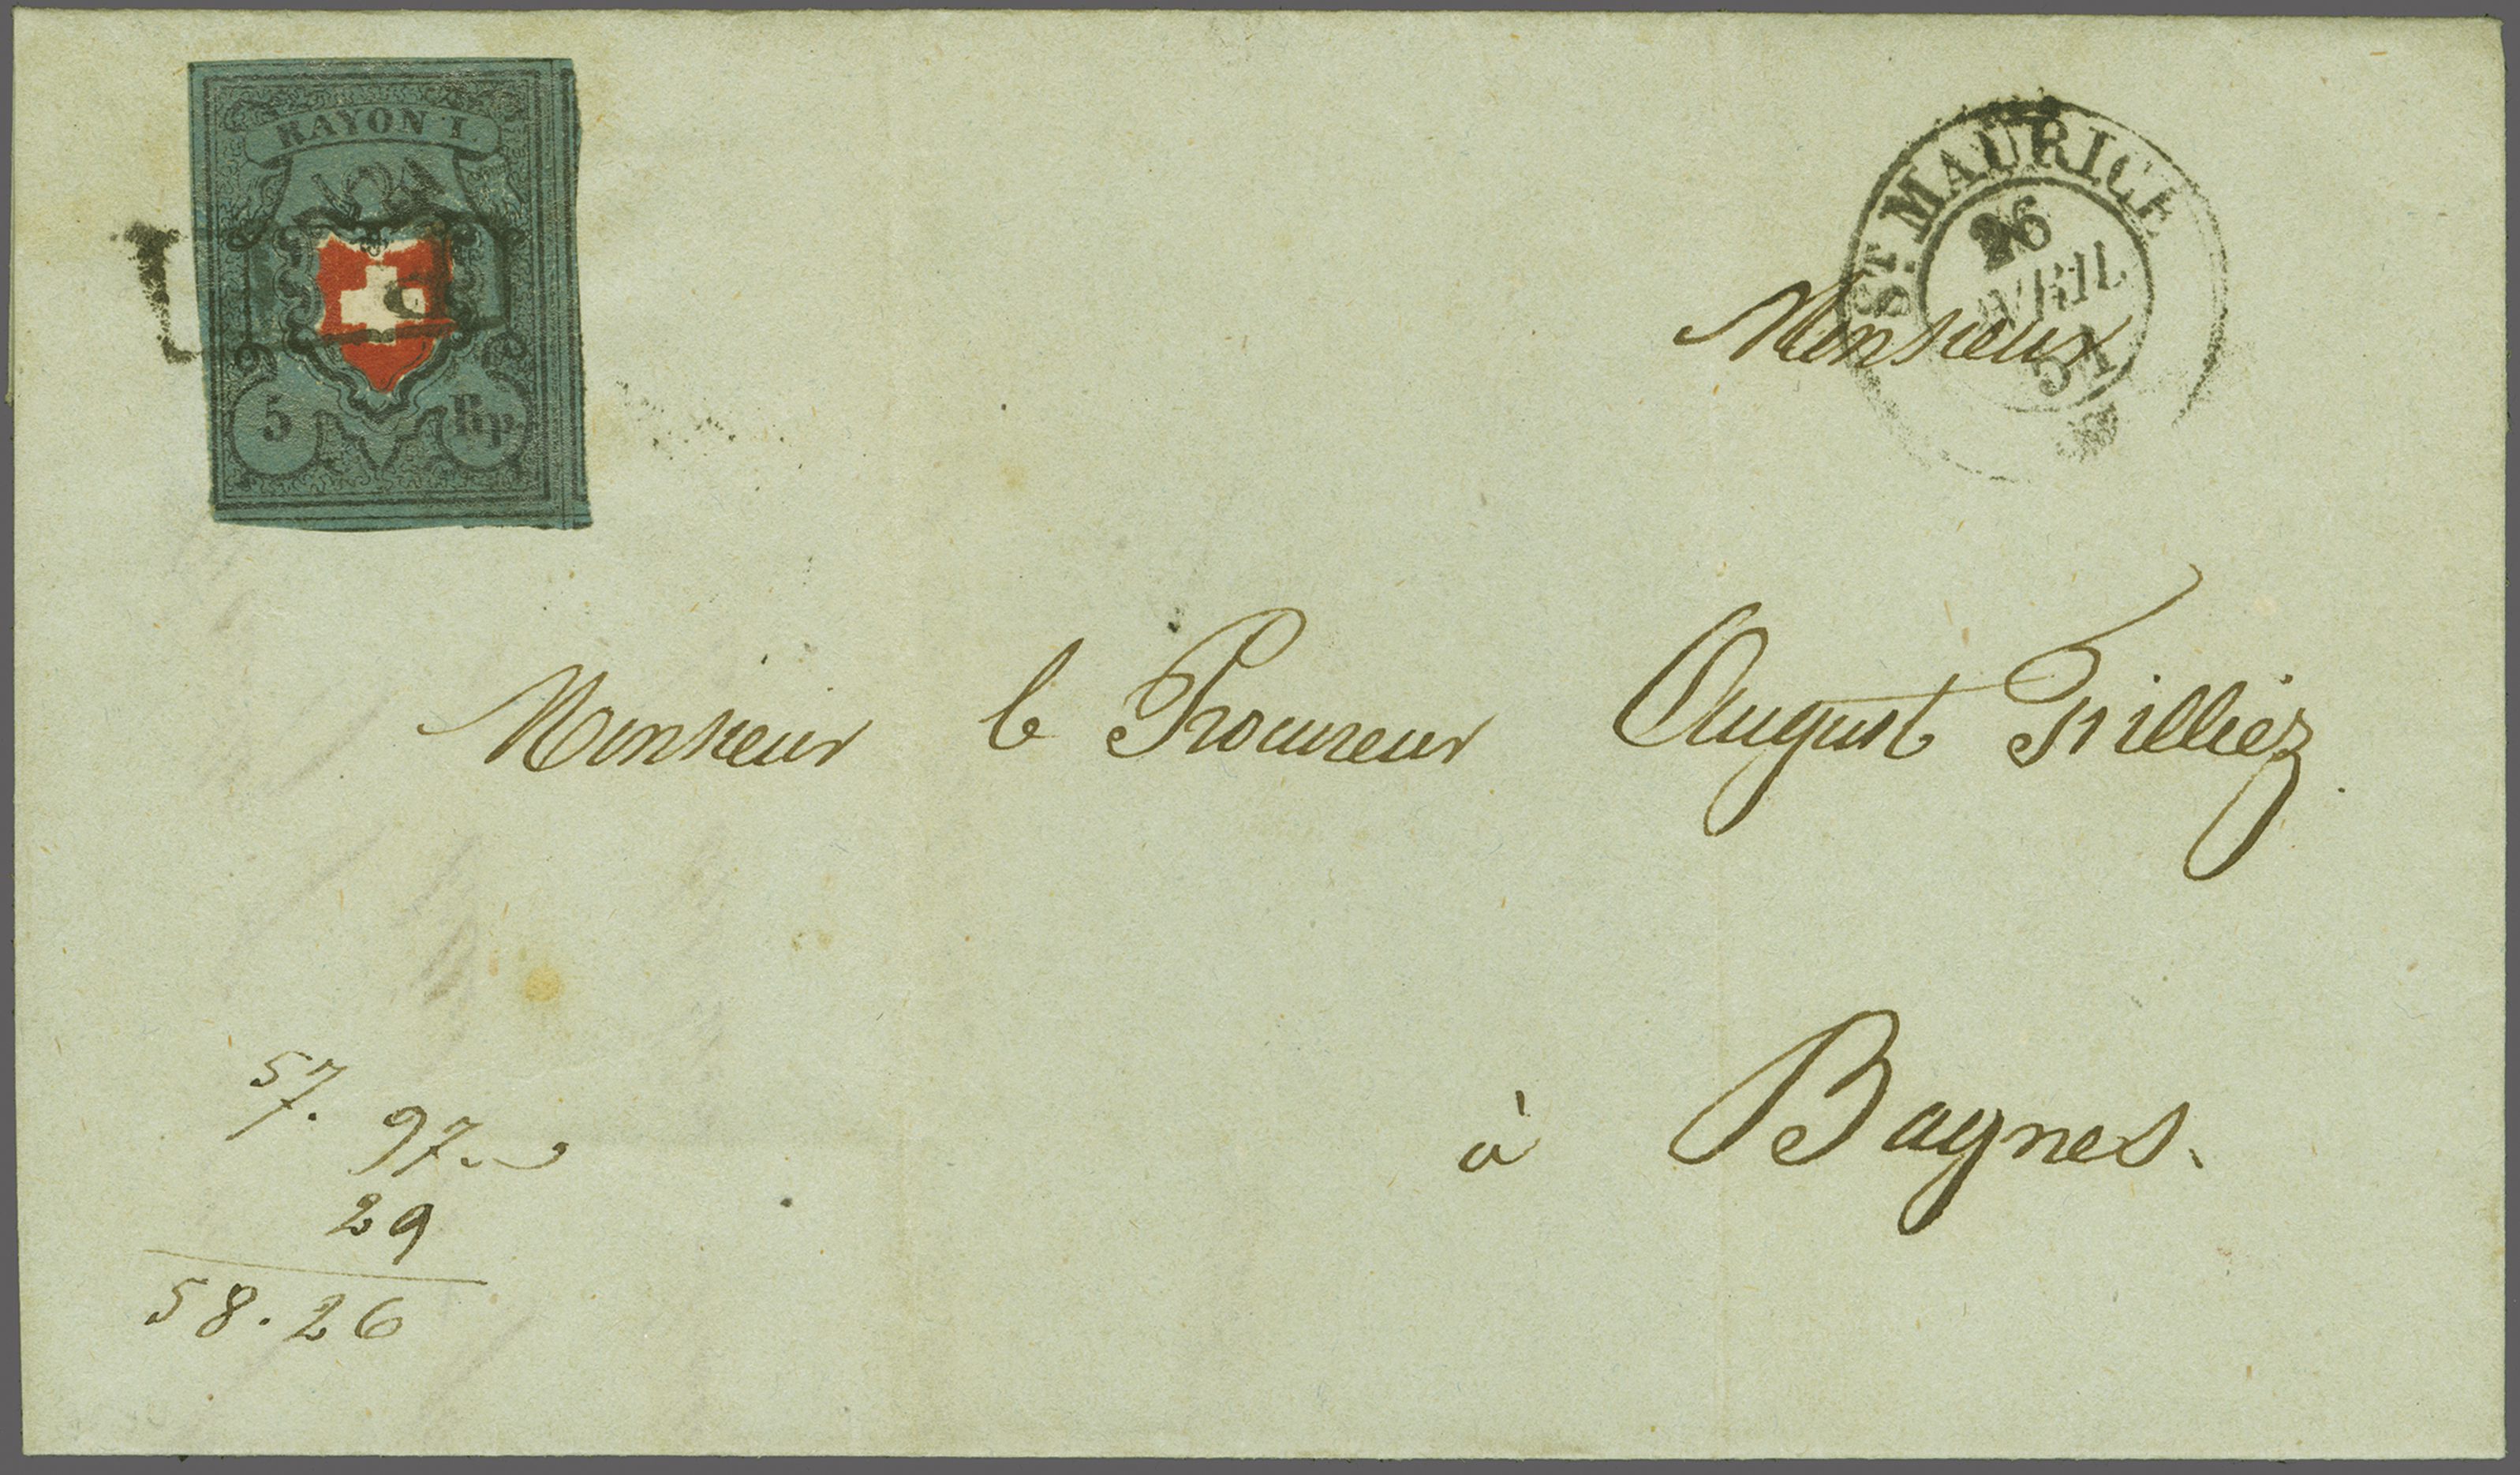 RAYON I
5 Rp.
St. MAURICE
26
AVRIL
51
Monsieur
Monsieur le Procureur August Filliez
à Bagnes.
57. 97
29
58.26